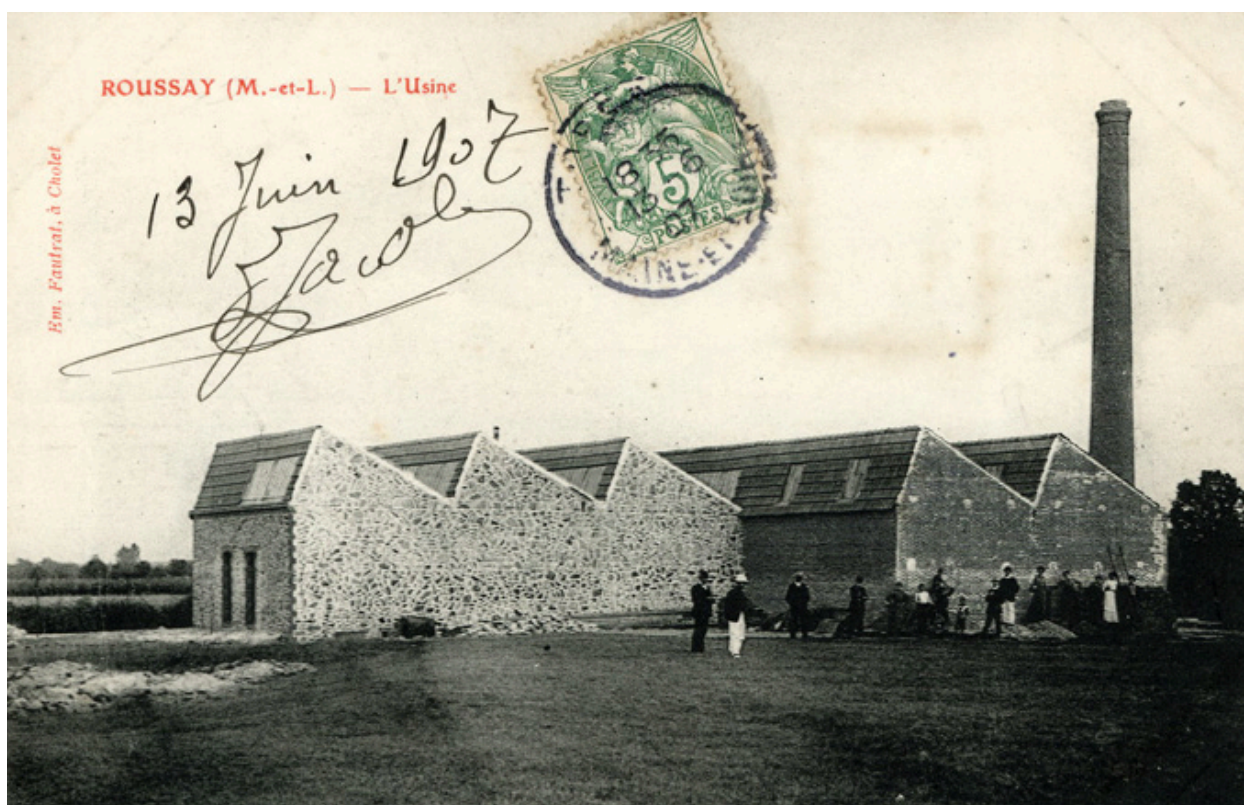 ROUSSAY (M.-et-L.) — L'Usine
Em. Fautrat, à Cholet
13 Juin 1907
5
POSTES
18 35
13 6
07
MAINE-ET-LOIRE